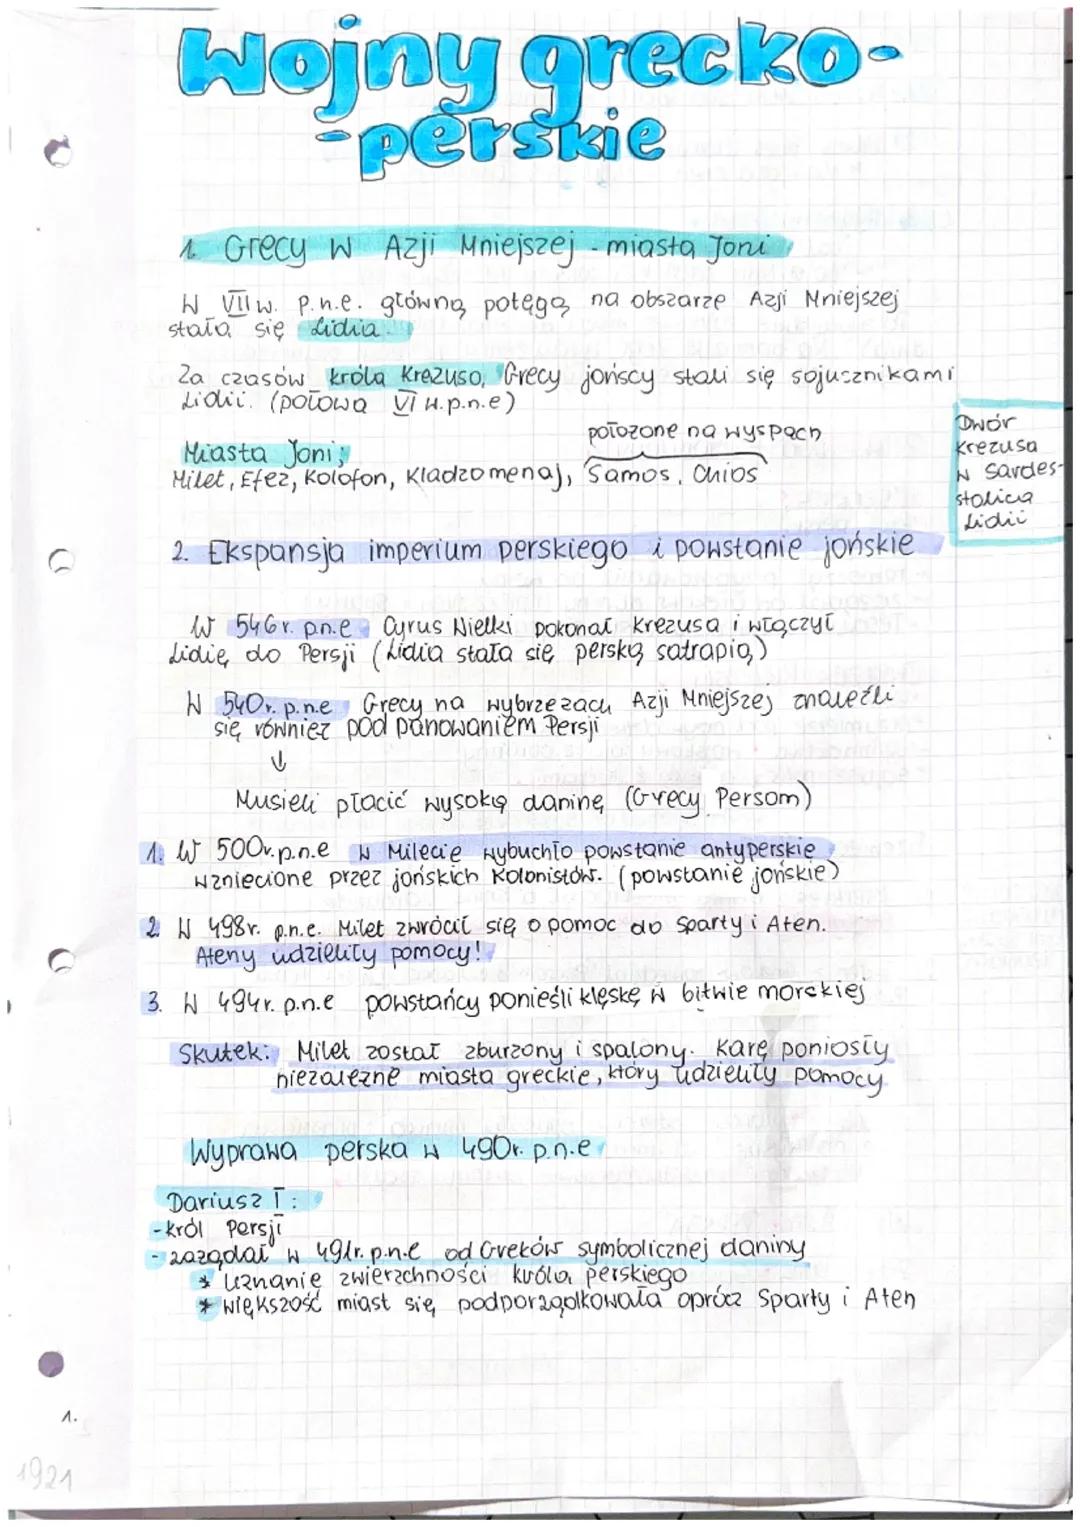 Wojny grecko-
-perskie
1. Grecy w Azji Mniejszej - miasta Joni
W VII w. p.n.e. główną potęgą na obszarze Azji Mniejszej
stała się Lidia.
Za czasów króla Krezusa, Grecy jońscy stali się sojusznikami
Lidii. (połowa VI w.p.n.e)
położone na wyspach
Miasta Joni;
Milet, Efez, Kolofon, Kladzomenaj, Samos, Chios
Dwór
Krezusa
w Sardes-
stolica
Lidii
2. Ekspansja imperium perskiego i powstanie jońskie
W 546r. p.n.e Cyrus Wielki pokonał Krezusa i włączył
Lidię do Persji (Lidia stała się perską satrapią)
W 540r. p.n.e Grecy na wybrzeżach Azji Mniejszej znaleźli
się również pod panowaniem Persji
↓
Musieli płacić wysoką daninę (Grecy Persom)
1. W 500r.p.n.e w Milecie wybuchło powstanie antyperskie
wzniecione przez jońskich kolonistów. (powstanie jońskie)
2. W 498r. p.n.e. Milet zwrócił się o pomoc do Sparty i Aten.
Ateny udzieliły pomocy!
3. W 494r. p.n.e powstańcy ponieśli klęskę w bitwie morskiej
Skutek: Milet został zburzony i spalony. Karę poniosły
niezależne miasta greckie, który udzieliły pomocy
Wyprawa perska w 490r. p.n.e
Dariusz I:
-król Persji
- zażądał w 491r. p.n.e od Greków symbolicznej daniny
* Uznanie zwierzchności króla perskiego
* większość miast się podporządkowała oprócz Sparty i Aten
1.
1921